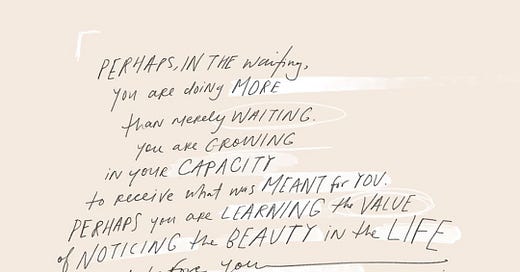 PERHAPS, IN THE waiting,
you are doing MORE
than merely WAITING.
you are GROWING
in your CAPACITY
to receive what was MEANT for YOU.
PERHAPS you are LEARNING the VALUE
of NOTICING the BEAUTY in the LIFE
before you